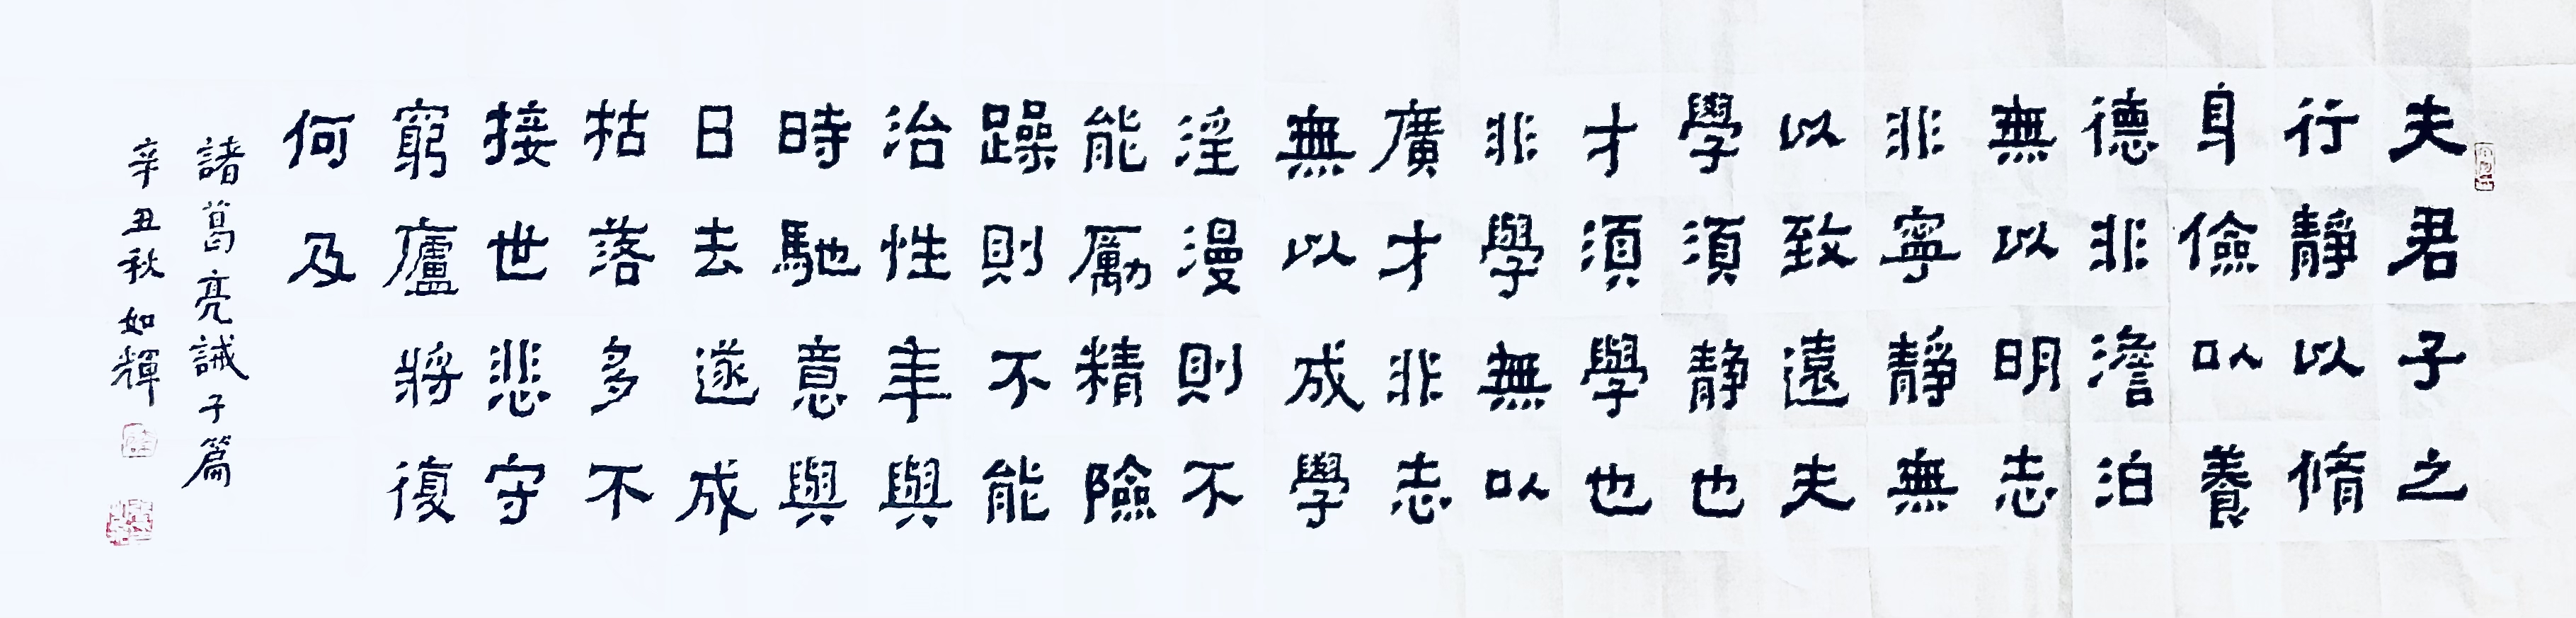 夫君子之
行靜以脩
身儉以養
德非澹泊
無以明志
非寧靜無
以致遠夫
學須静也
才須學也
非學無以
廣才非志
無以成學
淫漫則不
能厲精險
躁則不能
治性年與
時馳意與
日去遂成
枯落多不
接世悲守
窮廬將復
何及
諸葛亮誡子篇
辛丑秋如輝